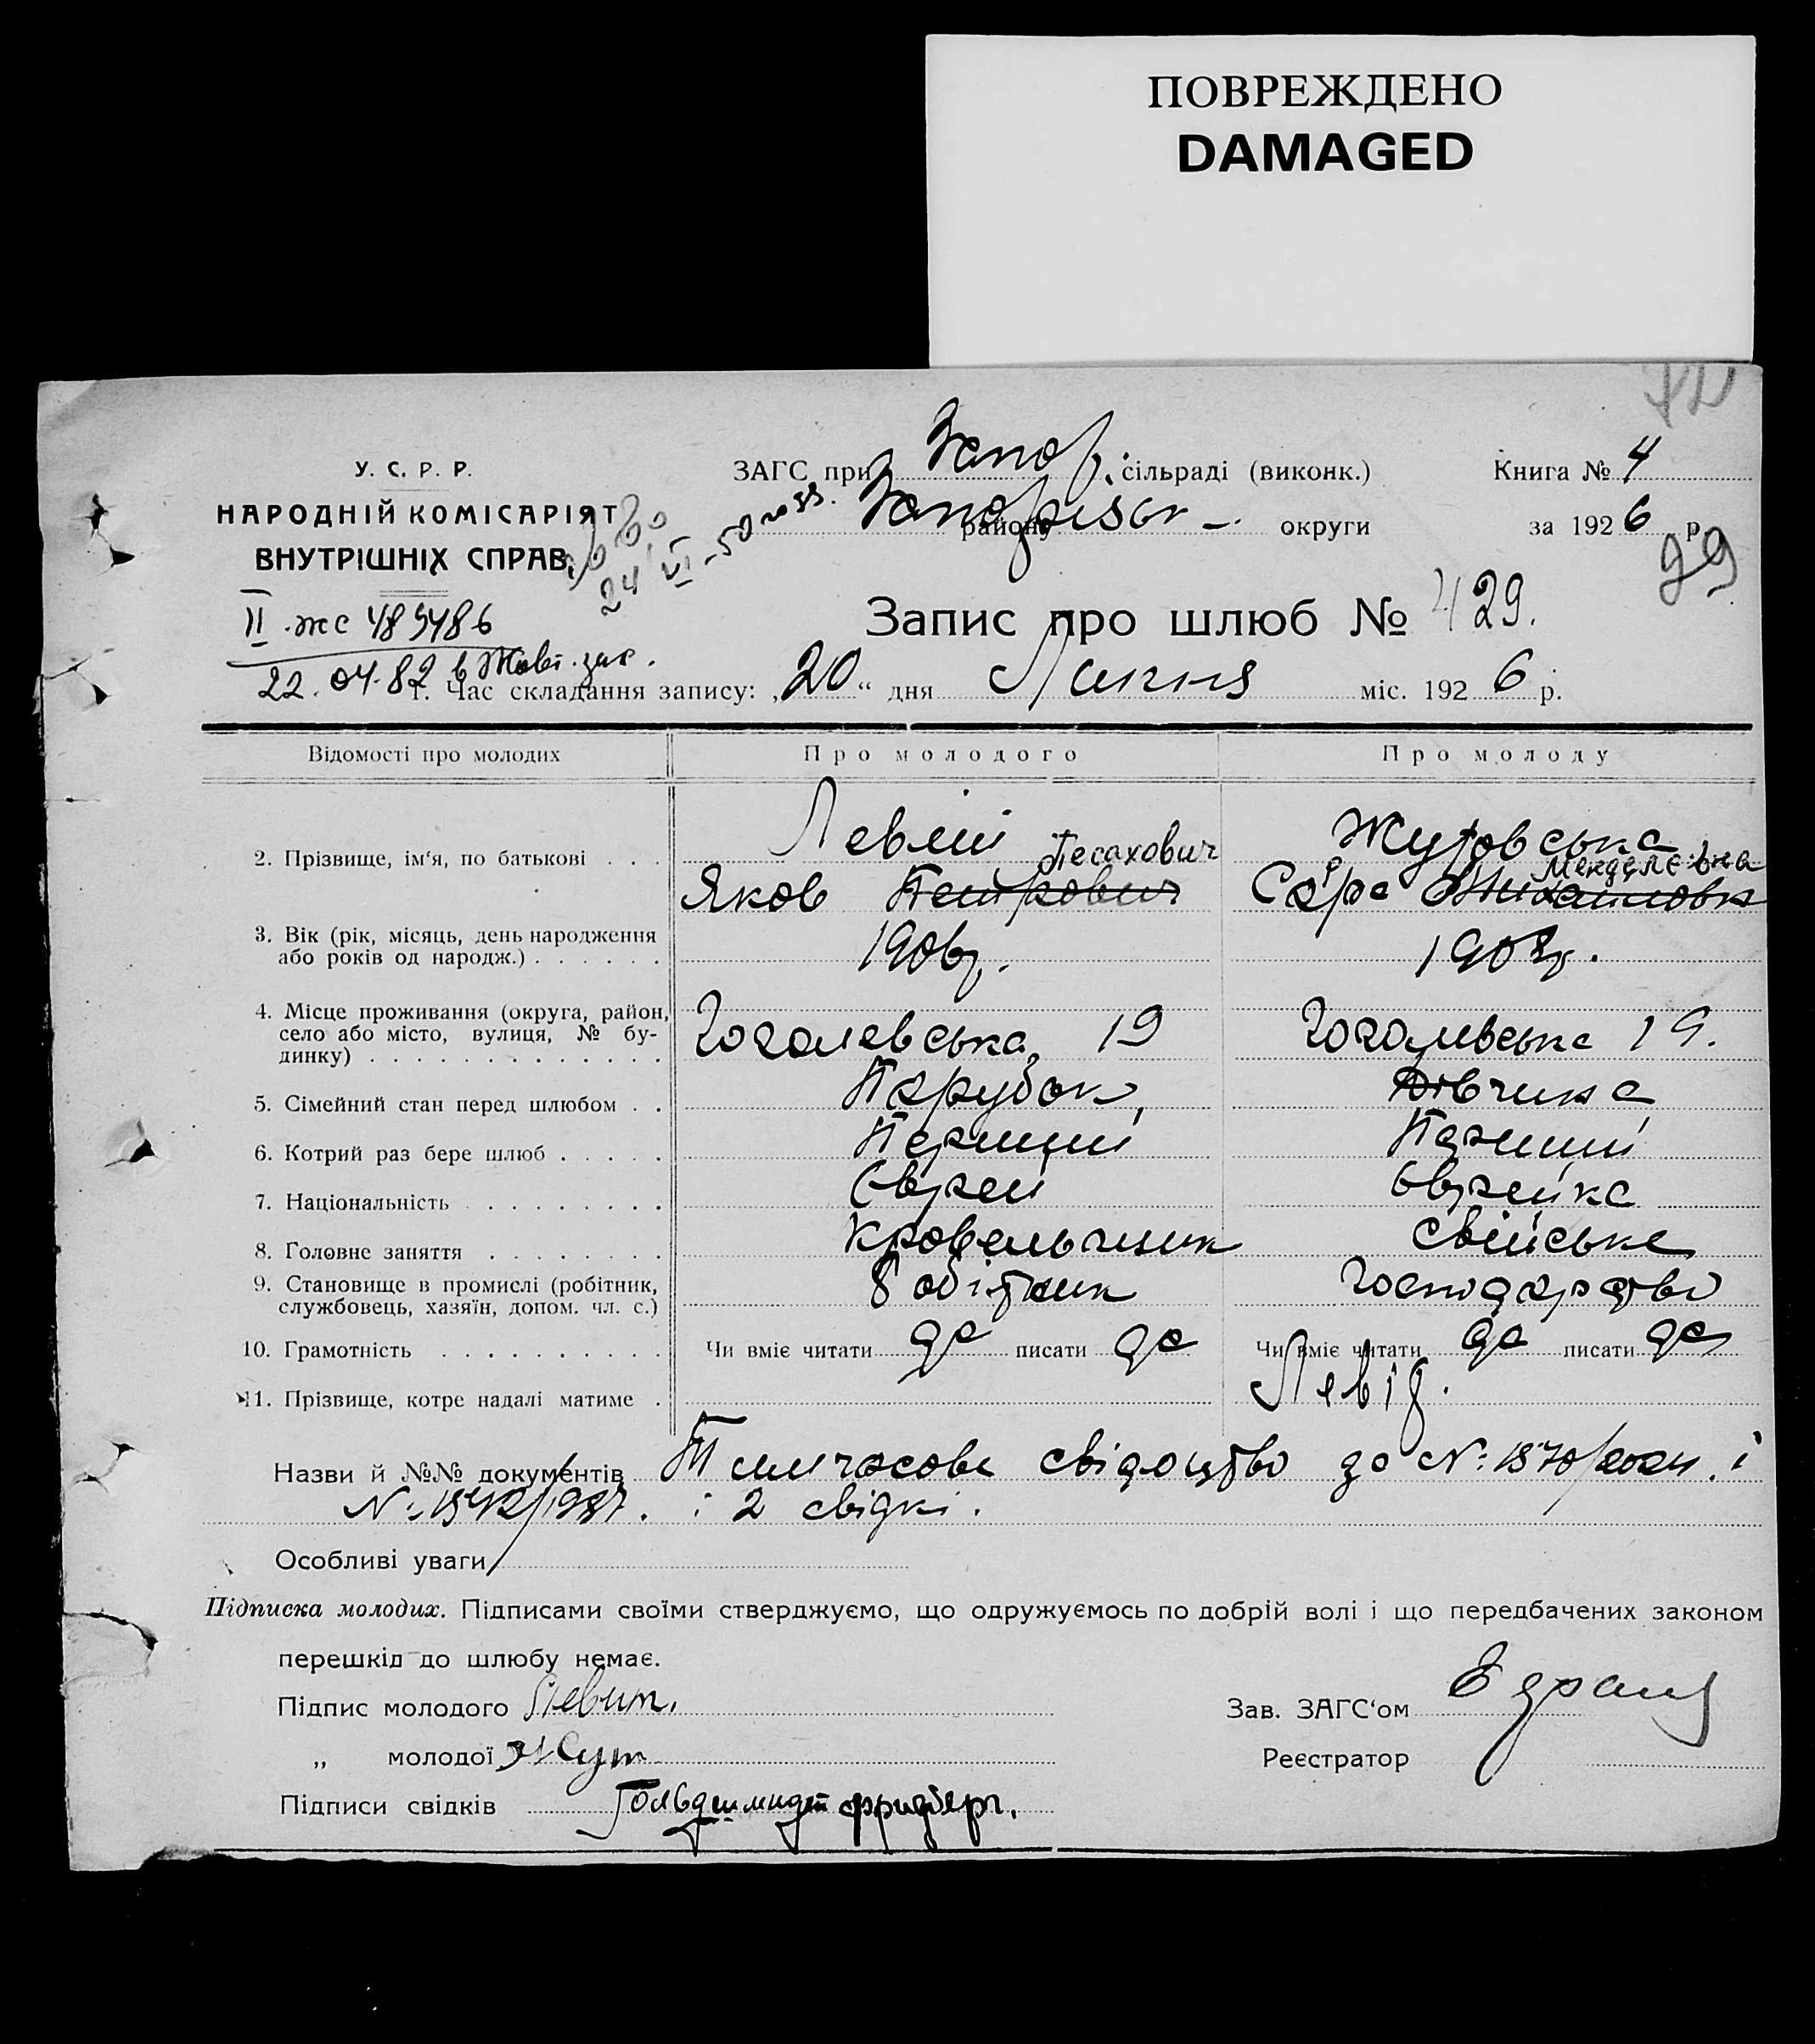 ПОВРЕЖДЕНО
DAMAGED
У. С. Р. Р.
НАРОДНІЙ КОМІСАРІЯТ
ВНУТРІШНІХ СПРАВ.
24 VI - 50
II жс 485486
22.04.82
ЗАГС при Запор. сільраді (виконк.)
району округи
Книга № 4
за 1926 р.
99
Запис про шлюб № 429.
1. Час складання запису: „20“ дня Липня міс. 1926 р.
Відомості про молодих
Про молодого
Про молоду
2. Прізвище, ім‘я, по батькові
Песахович
Яков Петрович
Жутовська
Менделєвна
Сара Михайловна
3. Вік (рік, місяць, день народження
або років од народж.)
1906р.
4. Місце проживання (округа, район,
село або місто, вулиця, № бу-
динку)
Гоголевська, 19
Гоголевська 19.
5. Сімейний стан перед шлюбом
Парубок
Дівчина
6. Котрий раз бере шлюб
Перший
Перший
7. Національність
Єврей
Єврейка
8. Головне заняття
Кровельчик
Свійське
9. Становище в промислі (робітник,
службовець, хазяїн, допом. чл. с.)
Робітник
Господарство
10. Грамотність
Чи вміє читати да писати да
Чи вміє читати да писати да
11. Прізвище, котре надалі матиме
Левіт.
Назви й №№ документів Тимчасове свідоцтво за №: 1870/2024. і
і 2 свідкі.
Особливі уваги
Підписка молодих. Підписами своїми стверджуємо, що одружуємось по добрій волі і що передбачених законом
перешкід до шлюбу немає.
Підпис молодого Левит.
„ молодої Жут
Підписи свідків Гольдшмидт Фридберг.
Зав. ЗАГС‘ом
Реєстратор